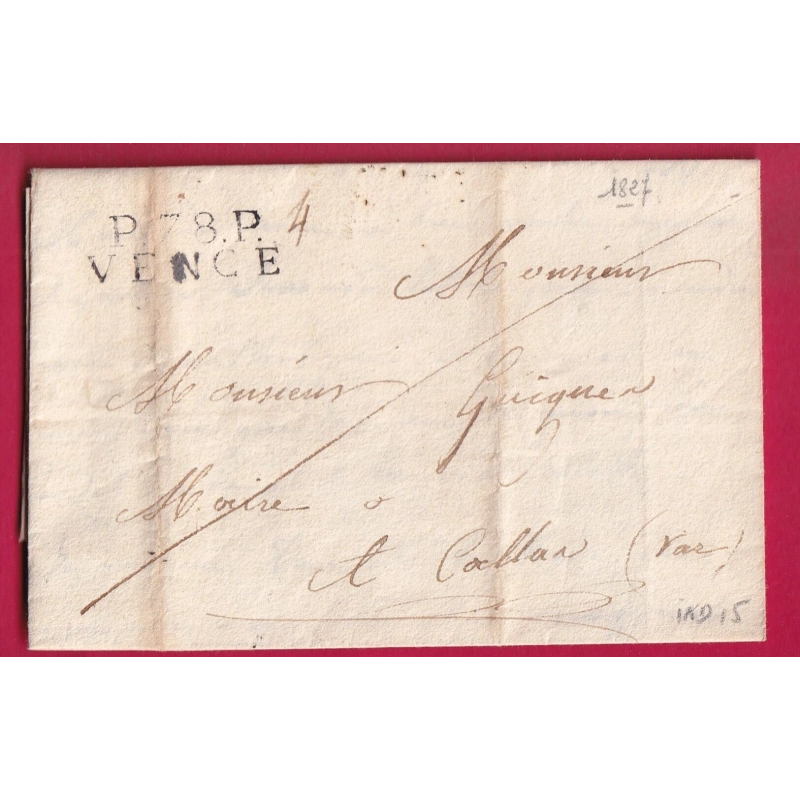 1827
P.78.P. 4
VENCE
Monsieur
Monsieur Guigues
Maire
A Callas (Var)
IND 15